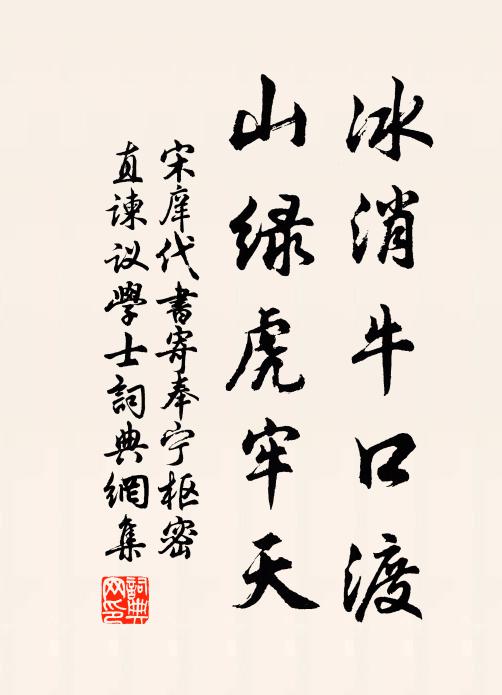 冰消牛口渡
山绿虎牢天
宋庠代書寄奉宁枢密
直谏议學士詞典網集
詞典網印